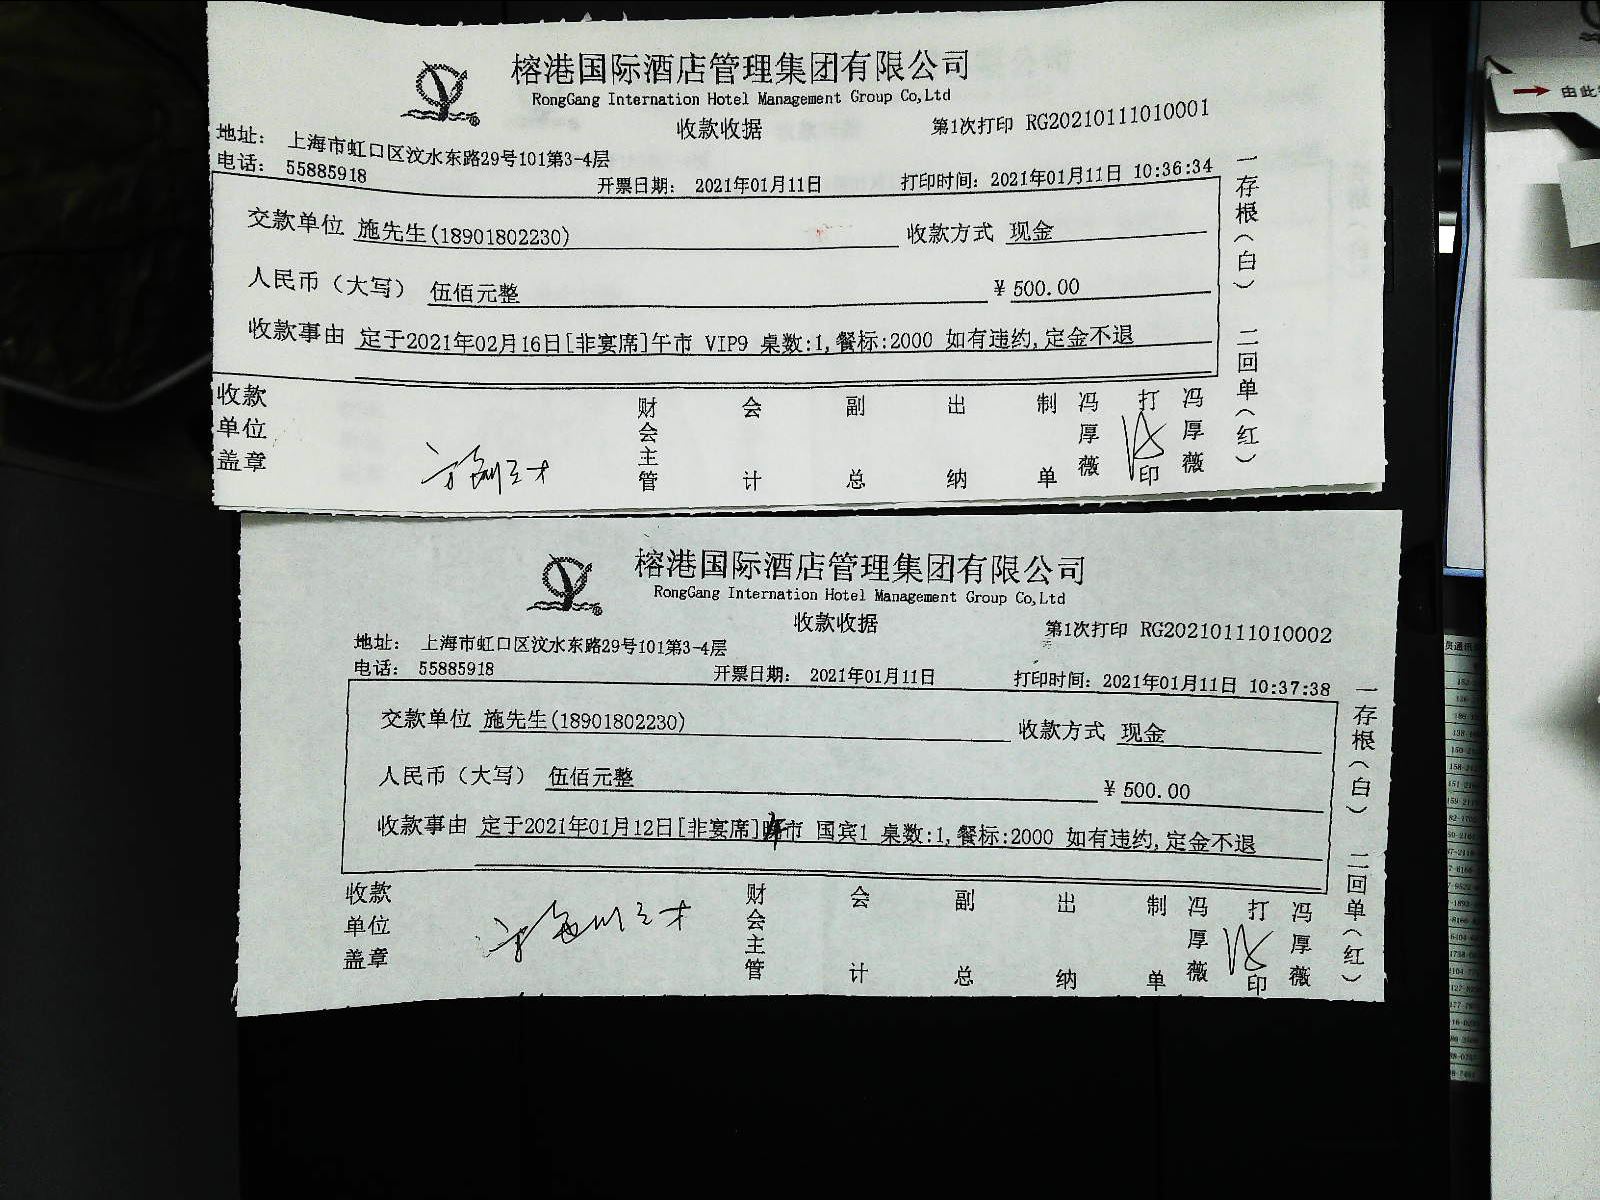 榕港国际酒店管理集团有限公司
RongGang Internation Hotel Management Group Co,Ltd
收款收据
第1次打印 RG20210111010001
地址: 上海市虹口区汶水东路29号101第3-4层
电话: 55885918
开票日期: 2021年01月11日
打印时间: 2021年01月11日 10:36:34
交款单位 施先生(18901802230) 收款方式 现金
人民币（大写） 伍佰元整 ¥ 500.00
收款事由 定于2021年02月16日[非宴席]午市 VIP9 桌数:1,餐标:2000 如有违约,定金不退
收款单位盖章 财会主管 会计 副总 出纳 制单 冯厚薇 打印 冯厚薇
一存根（白） 二回单（红）
榕港国际酒店管理集团有限公司
RongGang Internation Hotel Management Group Co,Ltd
收款收据
第1次打印 RG20210111010002
地址: 上海市虹口区汶水东路29号101第3-4层
电话: 55885918
开票日期: 2021年01月11日
打印时间: 2021年01月11日 10:37:38
交款单位 施先生(18901802230) 收款方式 现金
人民币（大写） 伍佰元整 ¥ 500.00
收款事由 定于2021年01月12日[非宴席]午市 国宾1 桌数:1,餐标:2000 如有违约,定金不退
收款单位盖章 财会主管 会计 副总 出纳 制单 冯厚薇 打印 冯厚薇
一存根（白） 二回单（红）
由此